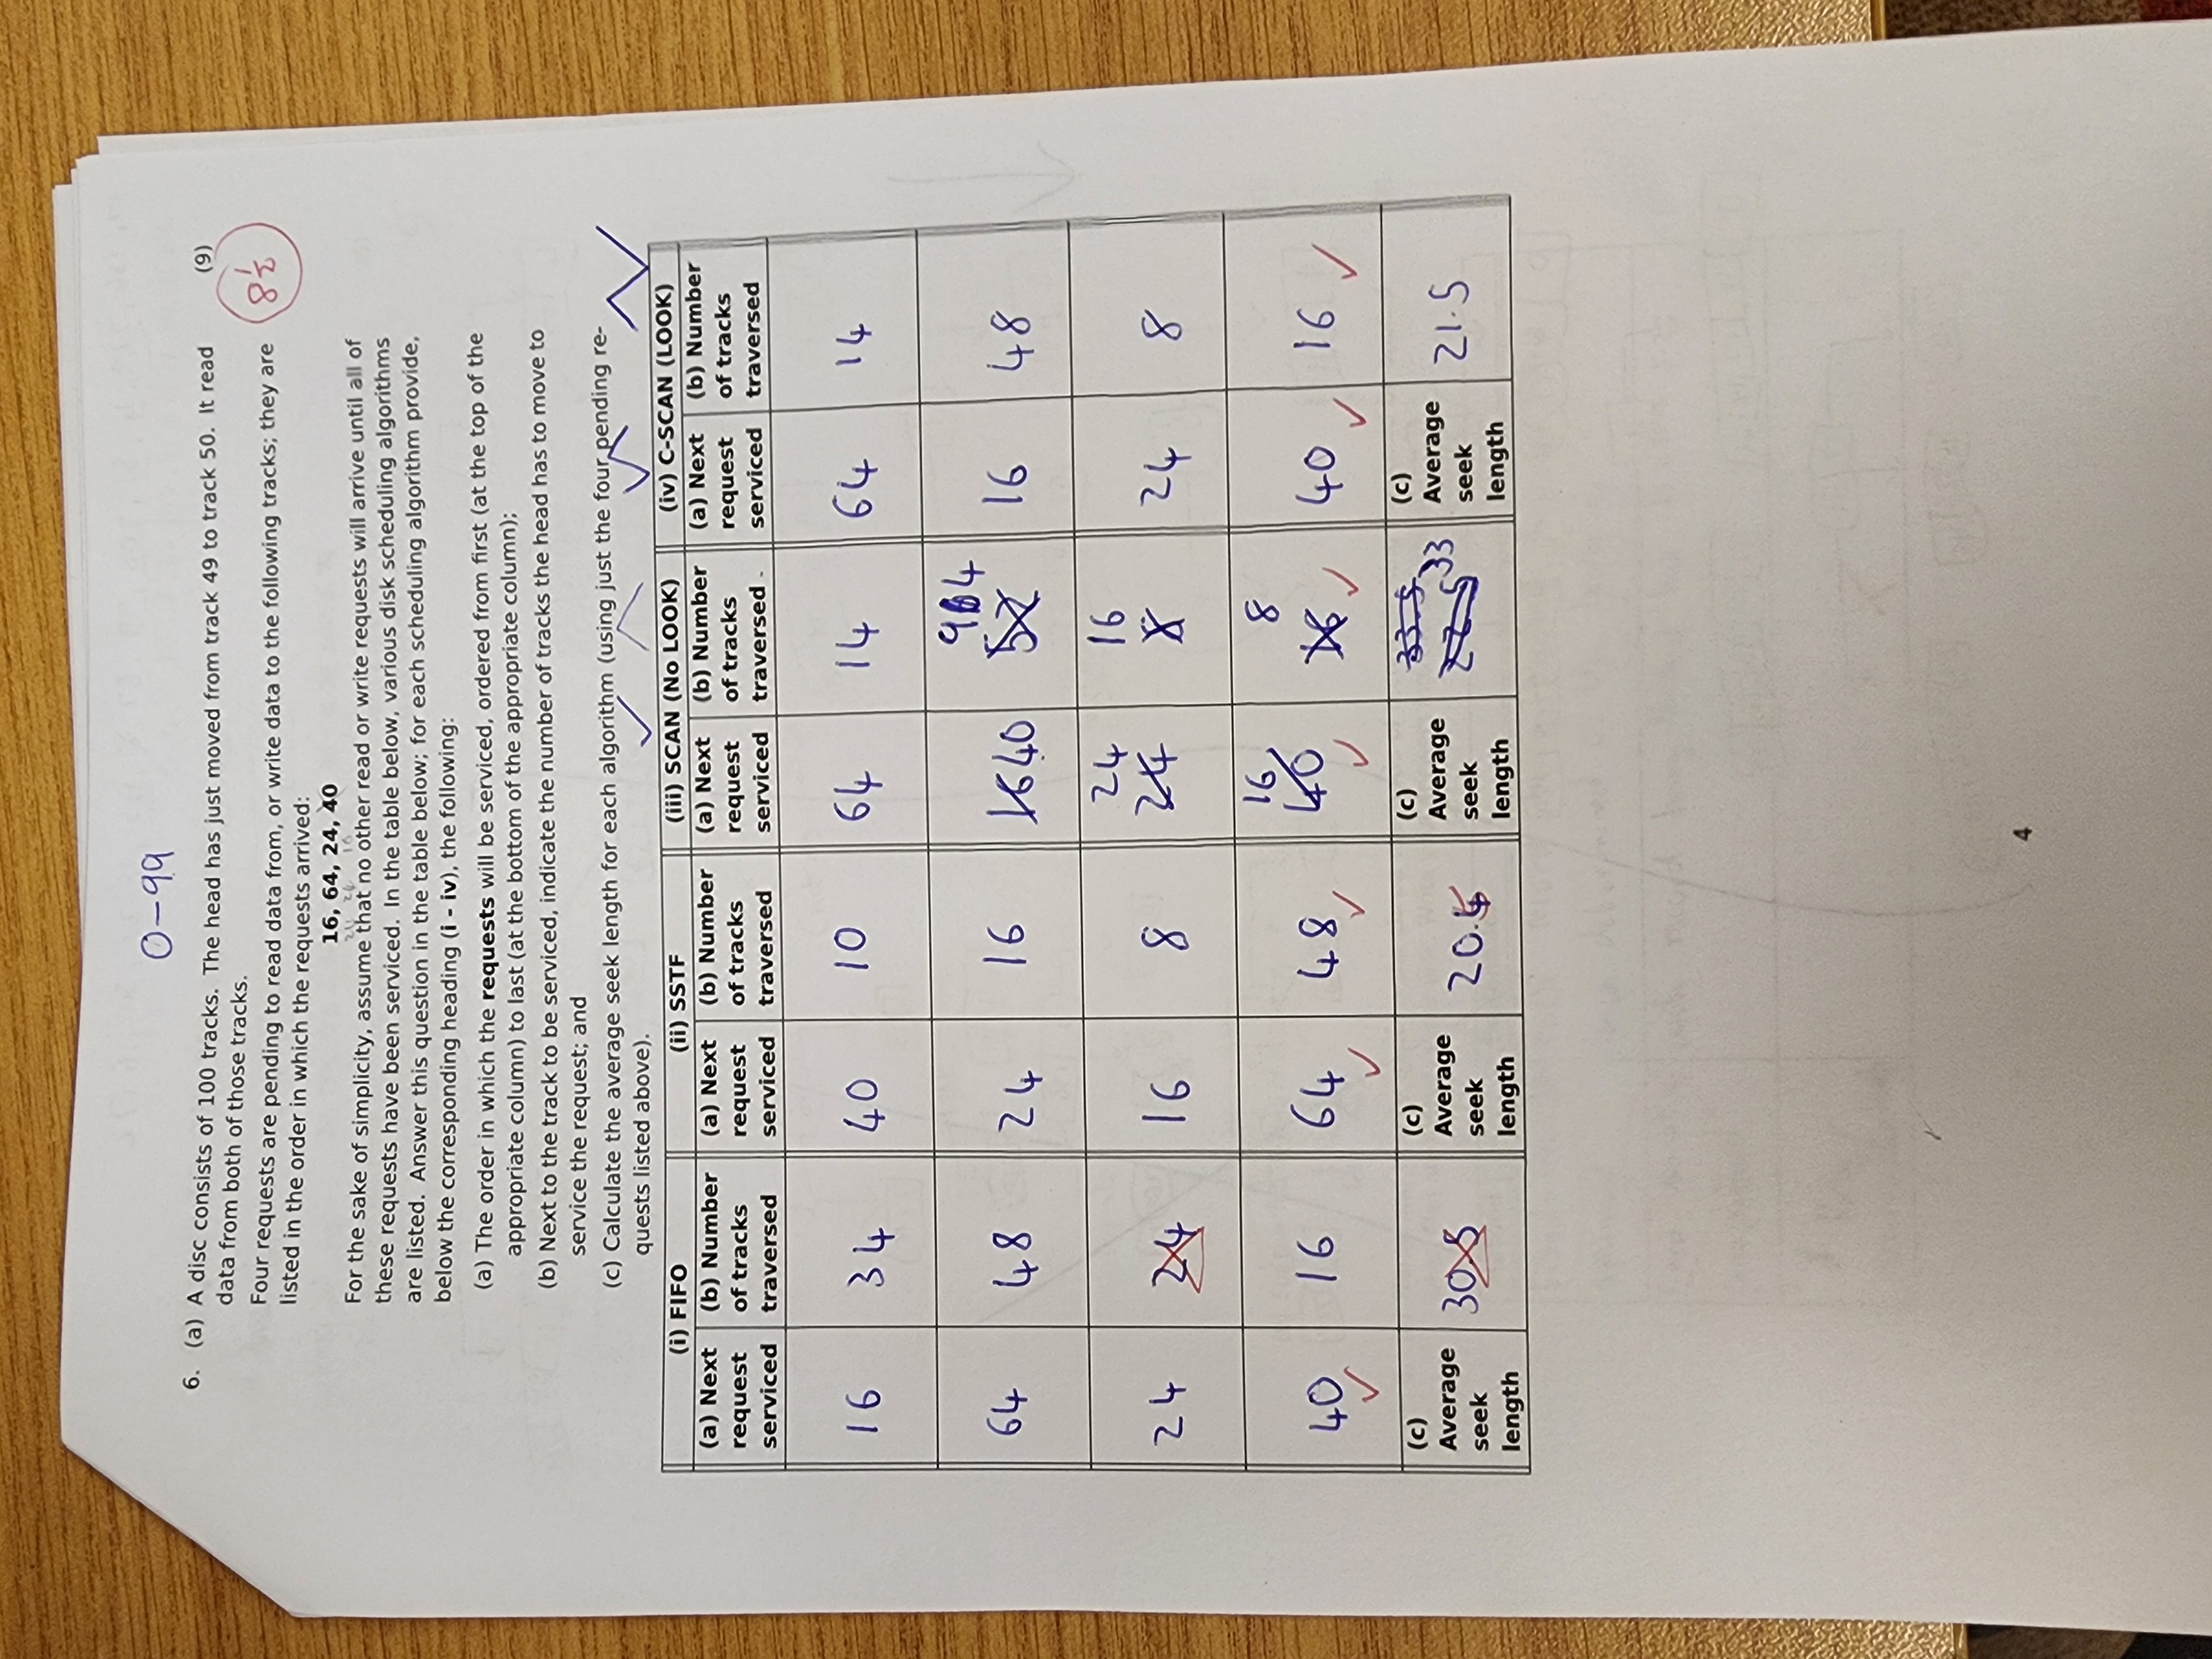 0-99
6. (a) A disc consists of 100 tracks. The head has just moved from track 49 to track 50. It read (9)
data from both of those tracks.
8 1/2
Four requests are pending to read data from, or write data to the following tracks; they are
listed in the order in which the requests arrived:
16, 64, 24, 40
For the sake of simplicity, assume that no other read or write requests will arrive until all of
these requests have been serviced. In the table below, various disk scheduling algorithms
are listed. Answer this question in the table below; for each scheduling algorithm provide,
below the corresponding heading (i - iv), the following:
(a) The order in which the requests will be serviced, ordered from first (at the top of the
appropriate column) to last (at the bottom of the appropriate column);
(b) Next to the track to be serviced, indicate the number of tracks the head has to move to
service the request; and
(c) Calculate the average seek length for each algorithm (using just the four pending re-
quests listed above).
(i) FIFO (ii) SSTF (iii) SCAN (No LOOK) (iv) C-SCAN (LOOK)
(a) Next (b) Number (a) Next (b) Number (a) Next (b) Number (a) Next (b) Number
request of tracks request of tracks request of tracks request of tracks
serviced traversed serviced traversed serviced traversed serviced traversed
16 34 40 10 64 14 64 14
94
64 48 24 16 16 40 52 16 48
24 16
24 24 16 8 24 8 24 8
16 8
40 16 64 48 40 16 40 16
(c) (c) (c) 33.5 (c)
Average Average Average 33 Average
30.5 20.5 22.5 21.5
seek seek seek seek
length length length length
4